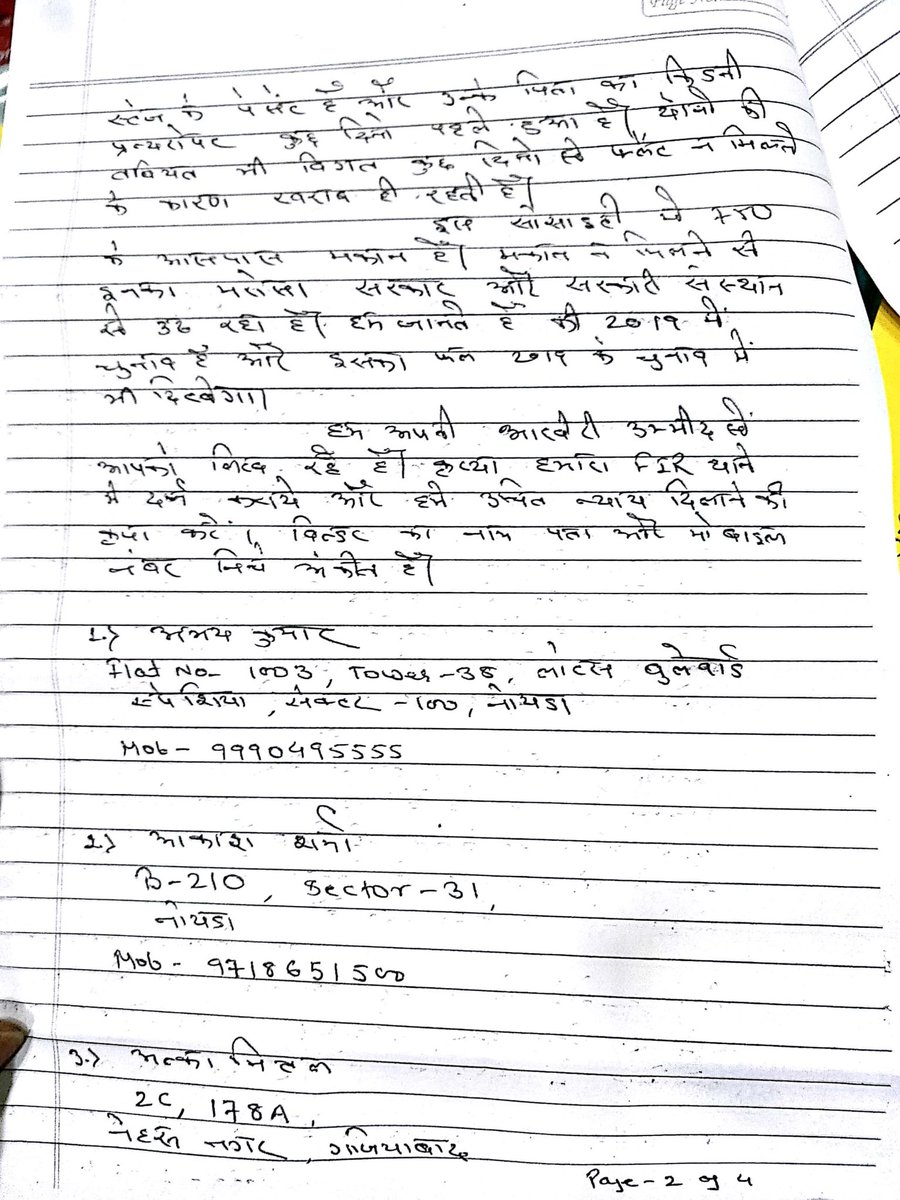 स्टेज के पेसेंट है और उनके पिता का किडनी
प्रत्यरोपट कुछ दिनों पहले हुआ है। दोनो की
तबियत भी विगत कुछ दिनो से फ्लैट न मिलने
के कारण खराब ही रहती है।
इस सोसाइटी मे 750
के आसपास मकान है। मकान न मिलने से
इनका भरोसा सरकार और सरकारी संस्थान
से उठ रहा है। हम जानते है की 2019 में
चुनाव है और इसका फल 2019 के चुनाव में
भी दिखेगा।
हम आपको आखरी उम्मीद से
आपको लिख रहे है। कृप्या हमारा FIR थाने
मे दर्ज कराये और हमे उचित न्याय दिलाने की
कृपा करें। बिल्डर का नाम पता और मोबाइल
नंबर निचे अंकीत है।
1.) अभय कुमार
Flat No- 1003, Tower-38, लोटस बुलेवार्ड
स्पेशिया, सेक्टर -100, नोयडा
Mob- 9990495555
2.) आकाश शर्मा
B-210, Sector-31,
नोयडा
Mob- 9718651500
3.) अल्का मित्तल
2C, 178A,
नेहरू नगर, गाजियाबाद
Page-2 of 4